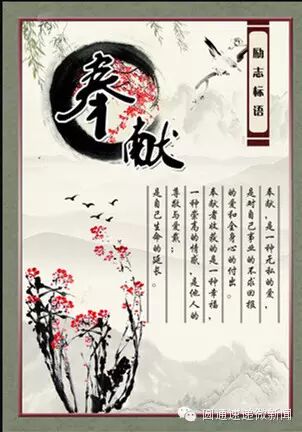 励志标语
奉献
奉献,是一种无私的爱,
是对自己事业的不求回报
的爱和全身心的付出。
奉献者收获的是一种幸福,
一种崇高的情感,是他人的
尊敬与爱戴;
是自己生命的延长。
圆通速递微新闻